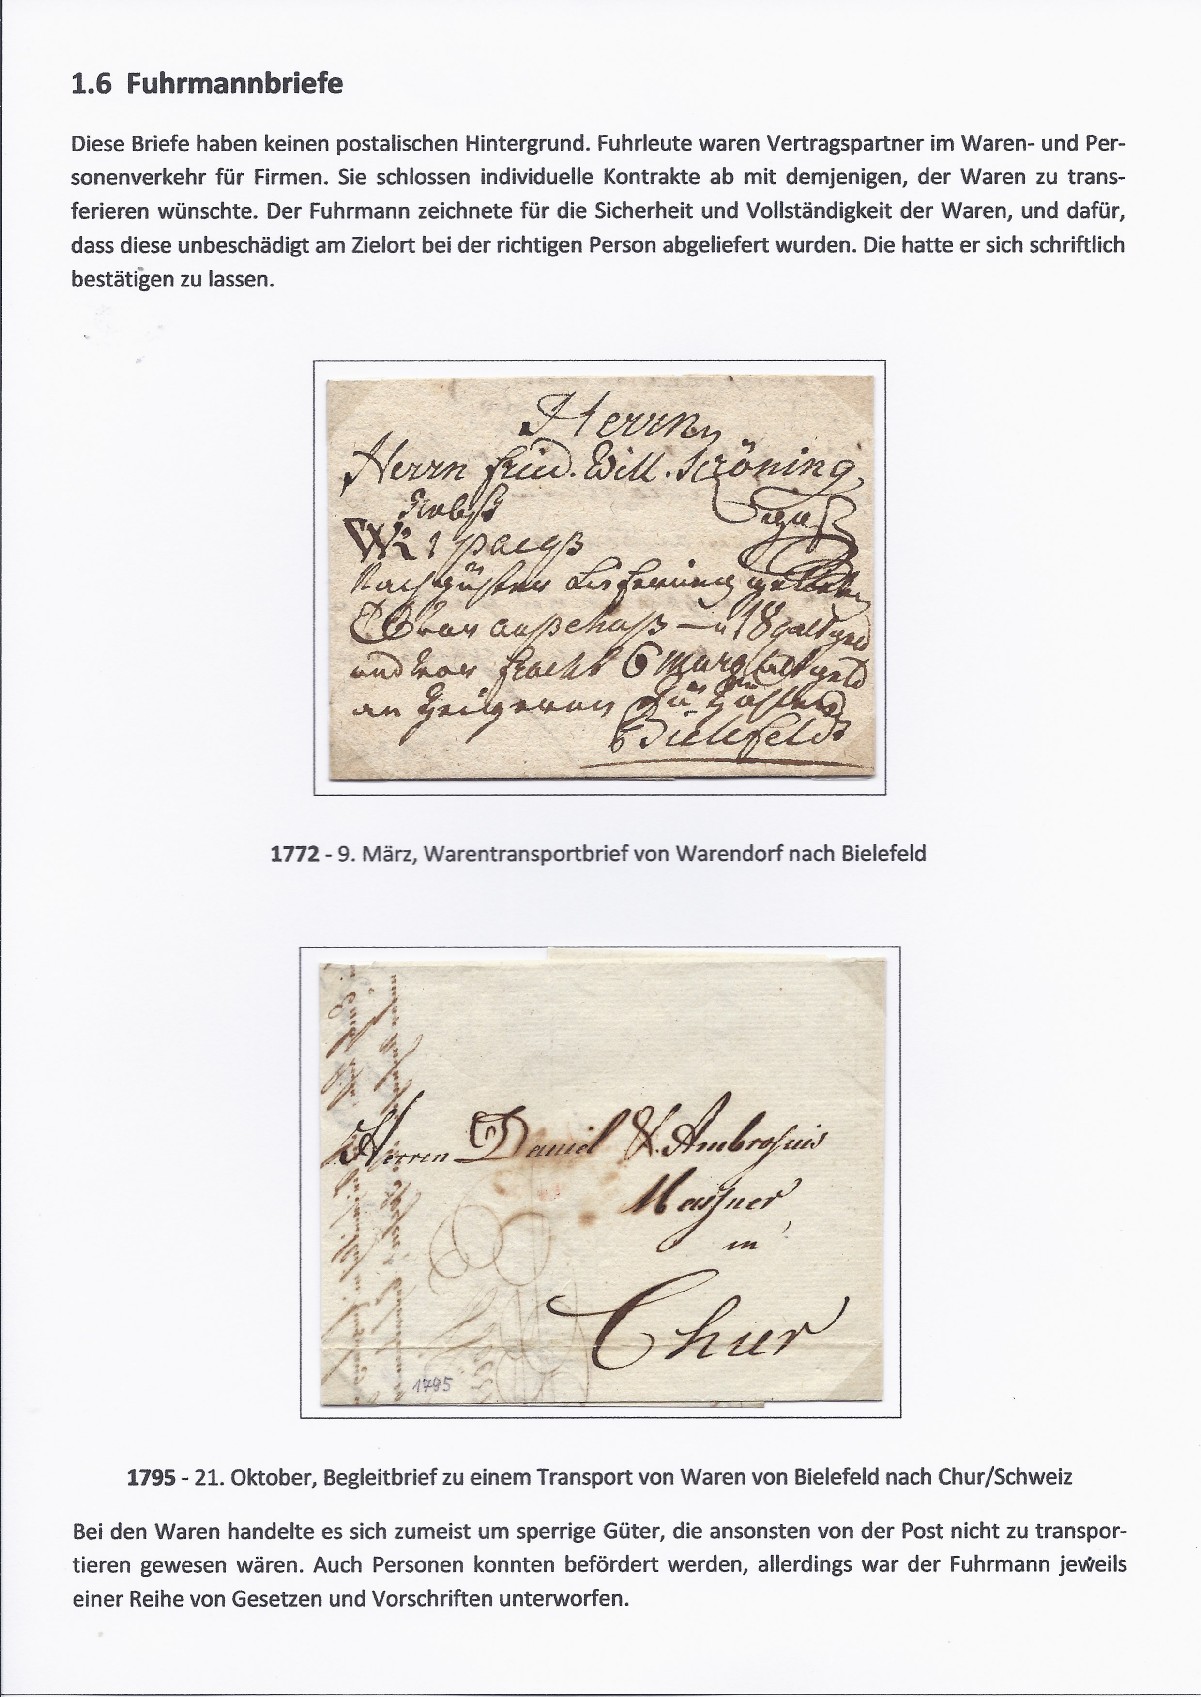 1.6 Fuhrmannbriefe
Diese Briefe haben keinen postalischen Hintergrund. Fuhrleute waren Vertragspartner im Waren- und Per-
sonenverkehr für Firmen. Sie schlossen individuelle Kontrakte ab mit demjenigen, der Waren zu trans-
ferieren wünschte. Der Fuhrmann zeichnete für die Sicherheit und Vollständigkeit der Waren, und dafür,
dass diese unbeschädigt am Zielort bei der richtigen Person abgeliefert wurden. Die hatte er sich schriftlich
bestätigen zu lassen.
Herrn
Herrn Frid. Will.
und von fracht 6
an
Bielefeld
1772 - 9. März, Warentransportbrief von Warendorf nach Bielefeld
Herren Daniel & Ambrosius
in
Chur
1795
1795 - 21. Oktober, Begleitbrief zu einem Transport von Waren von Bielefeld nach Chur/Schweiz
Bei den Waren handelte es sich zumeist um sperrige Güter, die ansonsten von der Post nicht zu transpor-
tieren gewesen wären. Auch Personen konnten befördert werden, allerdings war der Fuhrmann jeweils
einer Reihe von Gesetzen und Vorschriften unterworfen.